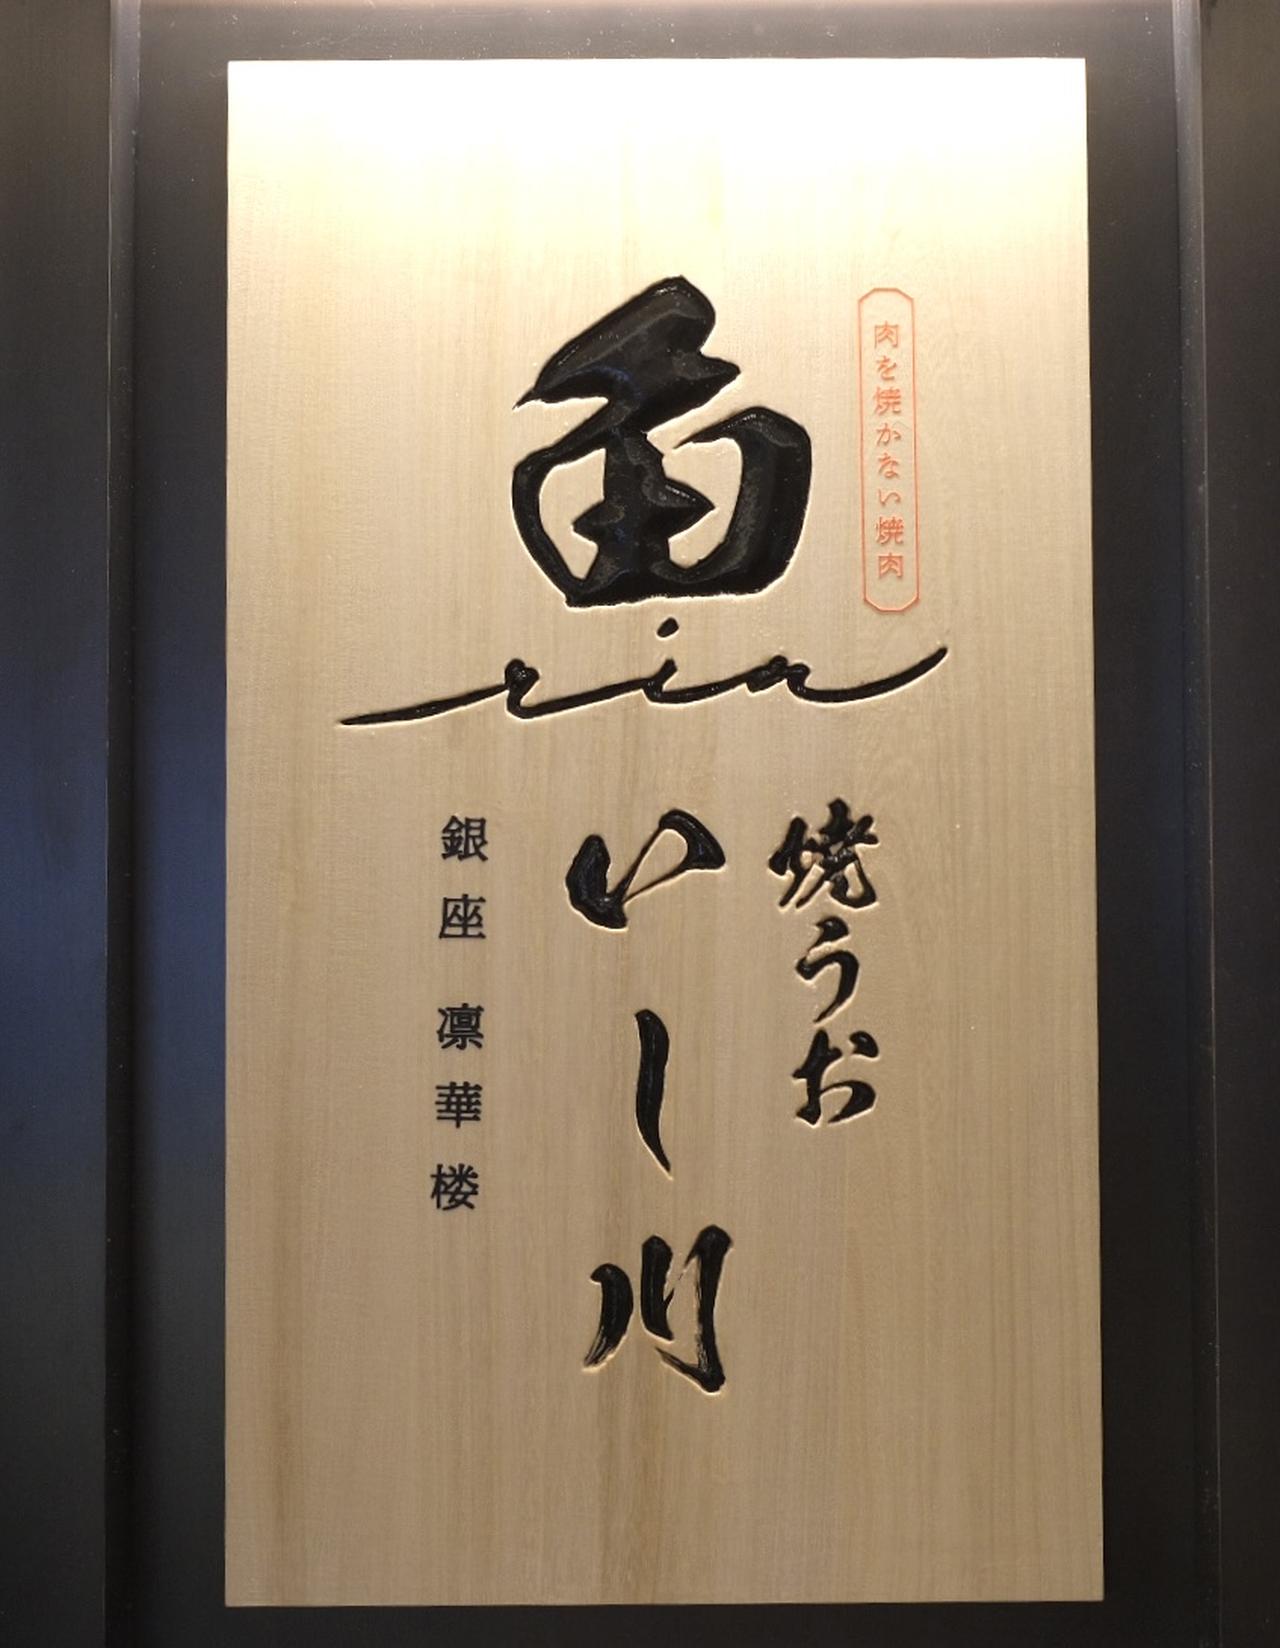 魚
肉を焼かない焼肉
rin
焼うお
いし川
銀座 凛華楼